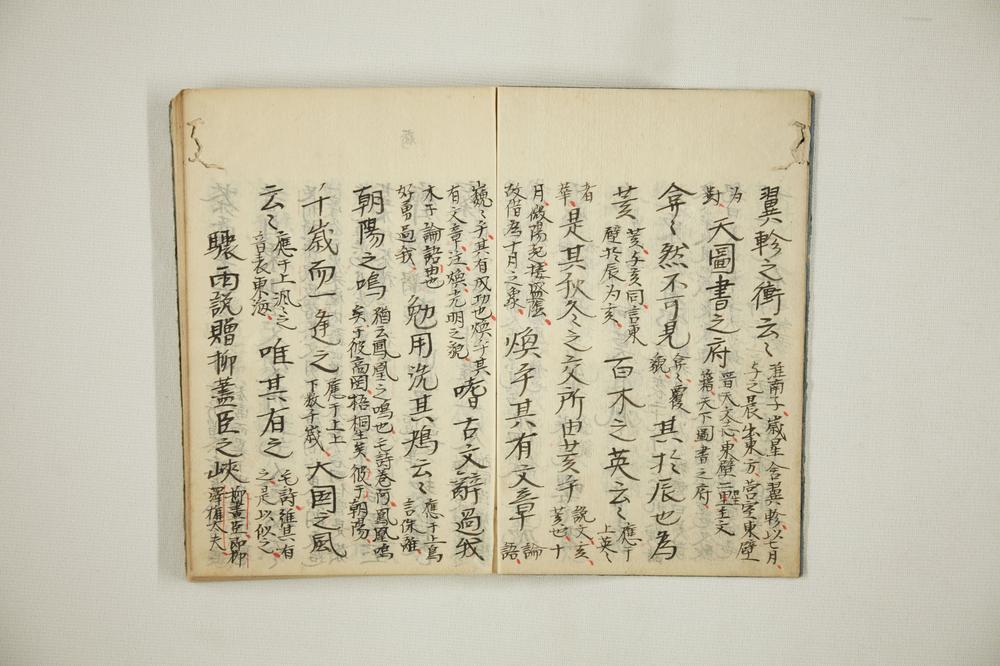 翼軫之衝云々 淮南子、歳星舍翼軫、以七月
与之晨出東方、営室東壁
為
對、天圖書之府 晋天文志、東壁二星主文
籍、天下圖書之府、
弇々然不可見 弇々、覆
貌、其於辰也為
荄 荄子亥同言東
壁於辰為亥、百木之英云々 應于
上英々
者
華、是其秋冬之交所由荄乎 説文、亥、
荄也、十
月、微陽起、接盛陰、
故借為十月之 煥乎其有文章 論
語
巍々乎其有成功也煥乎其
有文章、注、煥、光明之貌、嗜古文辭過我
木子論語由也
好勇過我、勉用洗其鴂云々 應于上鳥
言侏離
朝陽之鳴 猶云鳳凰之鳴也、毛詩卷阿、鳳凰鳴
矣于彼高岡、梧桐生矣、彼于朝陽、
千歳而一逢之 應于上上
下数千歳、大国之風
云々 應于上渢々之
音表東海、唯其有之 毛詩、維其有
之、是以似之
驟雨説贈柳蓋臣之峽 柳蓋臣即柳
澤権大夫、